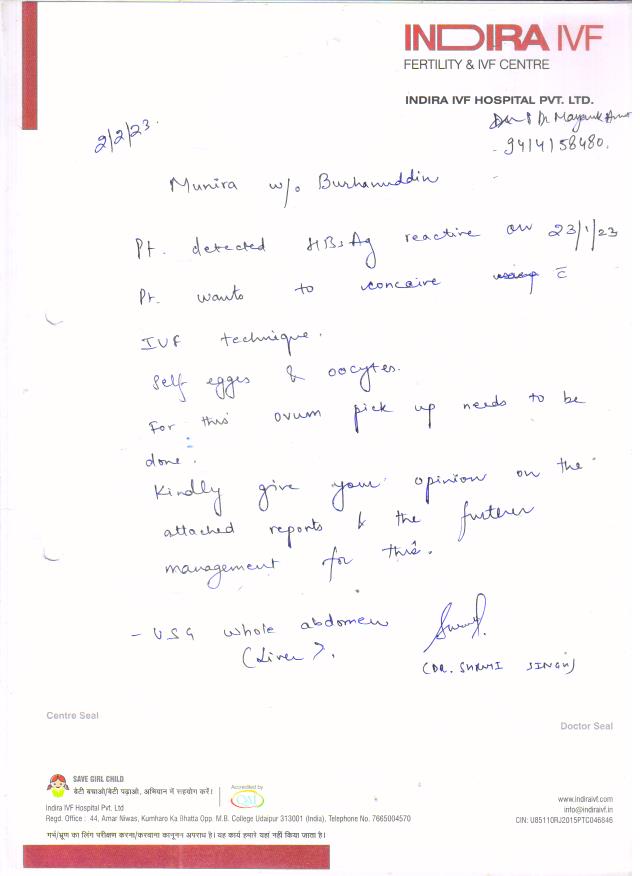 INDIRA IVF
FERTILITY & IVF CENTRE
INDIRA IVF HOSPITAL PVT. LTD.
Dr Mayank
- 9414158480.
2/2/23.
Munira w/o Burhanuddin
Pt. detected HBsAg reactive on 23/1/23
Pt. wants to concaive using c̅
IVF technique.
Self egges & oocytes.
For this ovum pick up needs to be
done.
Kindly give your opinion on the
attached reports & the further
management for this.
- USG whole abdomen
(Liver).
(DR. SINGH)
Centre Seal
Doctor Seal
SAVE GIRL CHILD
बेटी बचाओ/बेटी पढ़ाओ, अभियान में सहयोग करें।
Accredited by
QAI
Indira IVF Hospital Pvt. Ltd
Regd. Office : 44, Amar Niwas, Kumharo Ka Bhatta Opp. M.B. College Udaipur 313001 (India), Telephone No. 7665004570
गर्भ/भ्रूण का लिंग परीक्षण करना/करवाना कानूनन अपराध है। यह कार्य हमारे यहां नहीं किया जाता है।
www.indiraivf.com
info@indiraivf.in
CIN: U85110RJ2015PTC046846